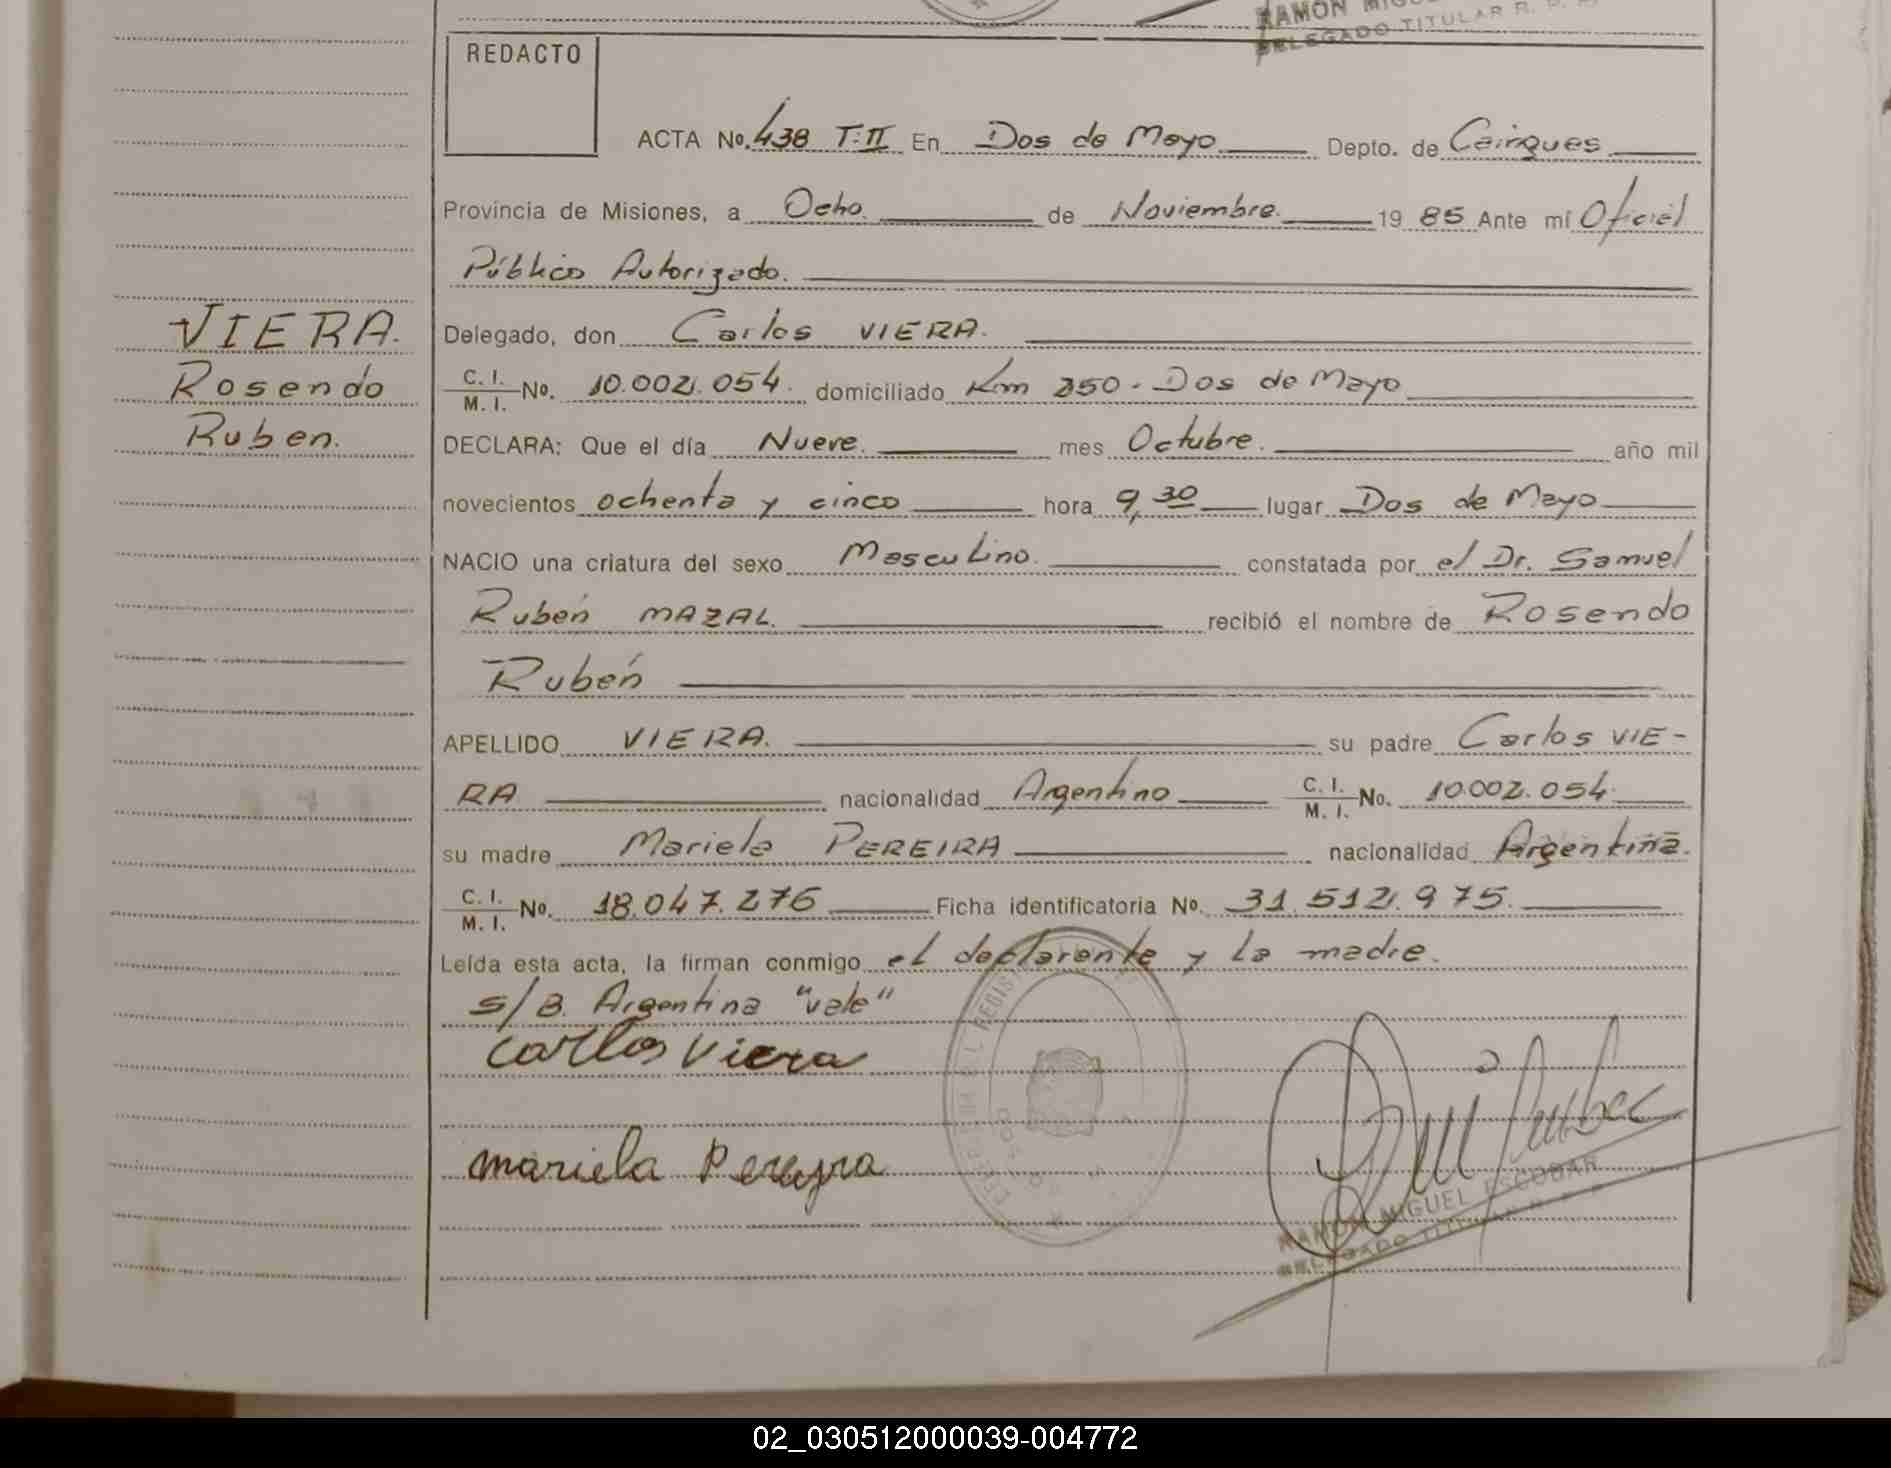 RAMON MIGU
DELEGADO TITULAR R. P.
REDACTO
ACTA No. 438 T: II En Dos de Mayo Depto. de Cainguas
Provincia de Misiones, a Ocho. de Noviembre. 19 85 Ante mí Oficial
Público Autorizado.
VIERA.
Rosendo
Ruben.
Delegado, don Carlos VIERA.
C. I. / M. I. No. 10.002.054. domiciliado Km 250 - Dos de Mayo
DECLARA: Que el día Nueve. mes Octubre. año mil
novecientos ochenta y cinco hora 9,30 lugar Dos de Mayo
NACIO una criatura del sexo Masculino. constatada por el Dr. Samuel
Rubén MAZAL. recibió el nombre de Rosendo
Rubén
APELLIDO VIERA. su padre Carlos VIE-
RA nacionalidad Argentino C. I. / M. I. No. 10.002.054.
su madre Mariela PEREIRA nacionalidad Argentina.
C. I. / M. I. No. 18.047.276 Ficha identificatoria No. 31.512.975.
Leída esta acta, la firman conmigo el declarante y la madre.
s/B. Argentina "vale"
Carlos Viera
mariela Pereyra
RAMON MIGUEL ESCOBAR
DELEGADO TITULAR R. P.
02_030512000039-004772